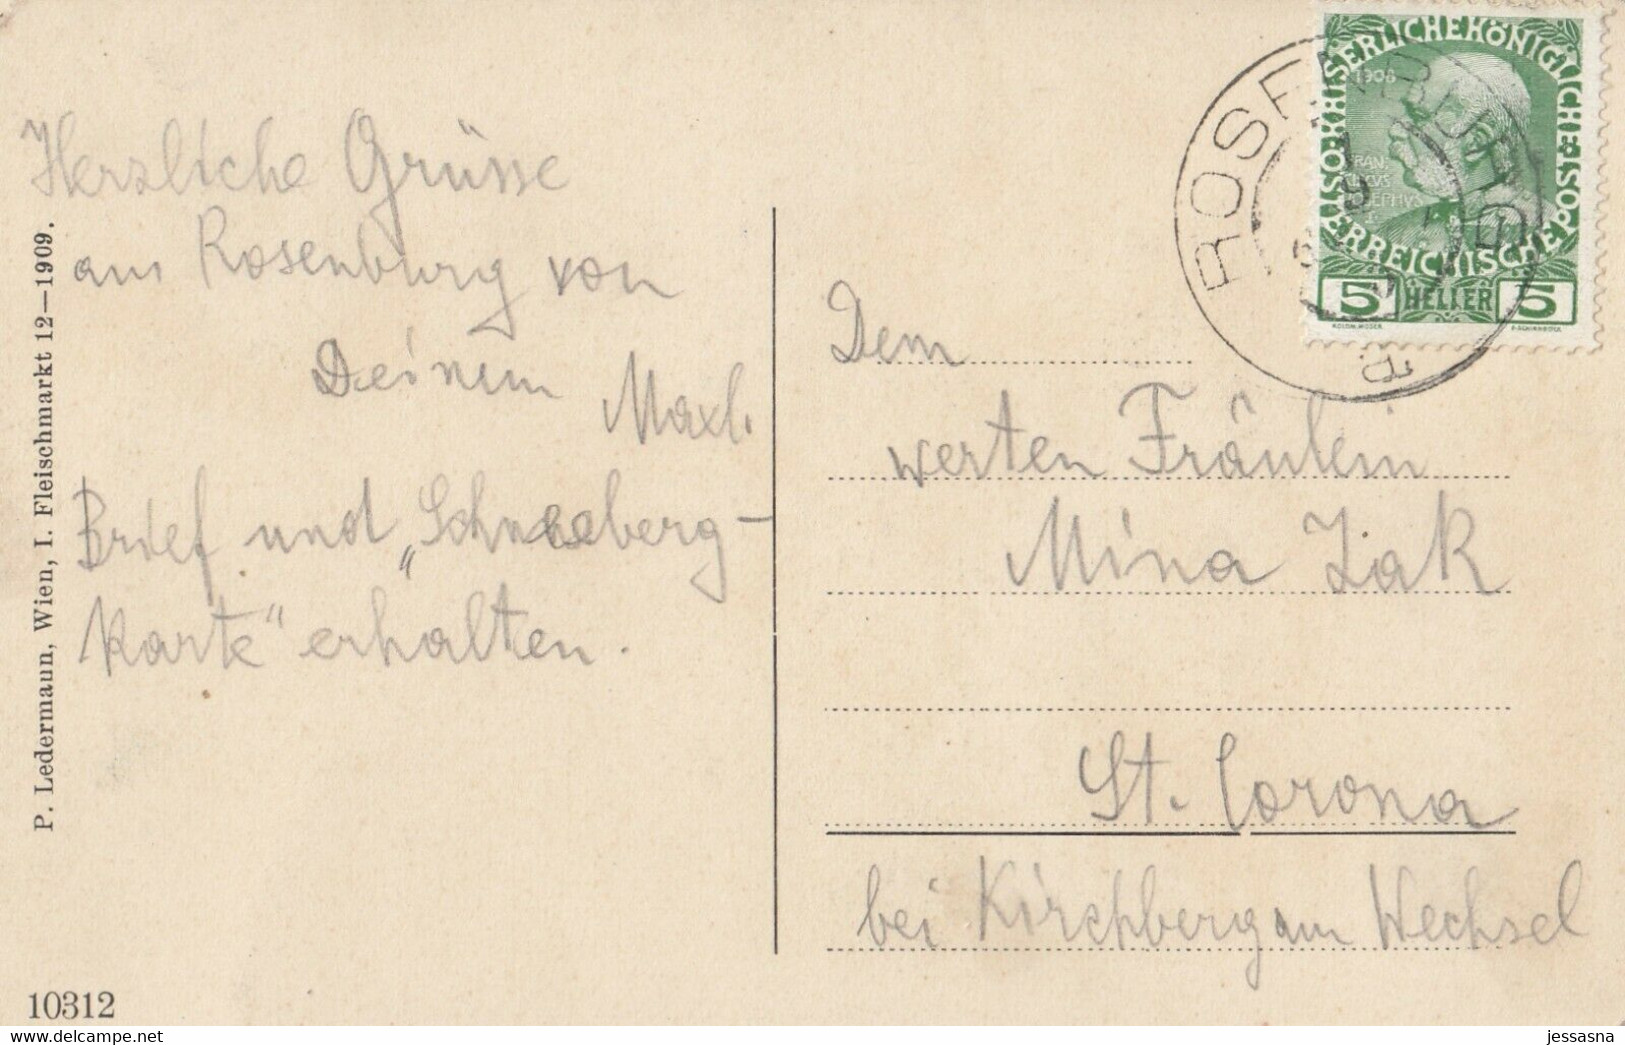 Herzliche Grüsse
aus Rosenburg von
Deinem
Maxl.
Brief und „Schneeberg-
Karte“ erhalten.
P. Ledermann, Wien, I. Fleischmarkt 12—1909.
10312
ROSENBURG
KAISERLICHE KÖNIGLICHE
ÖSTERREICHISCHE POST
1908
FRAN-
CISCVS
IOSEPHVS
I.
5 HELLER 5
KOLOM. MOSER
F. SCHIRNBÖCK
Dem
werten Fräulein
Mina Zak
St. Corona
bei Kirchberg am Wechsel
www.delcampe.net
jessasna